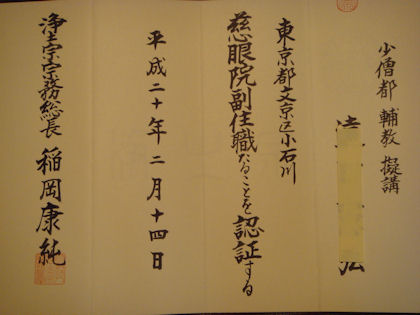 少僧都 輔教 擬講
東京都文京区小石川
慈眼院副住職たることを認証する
平成二十年二月十四日
浄土宗宗務総長 稲岡康純